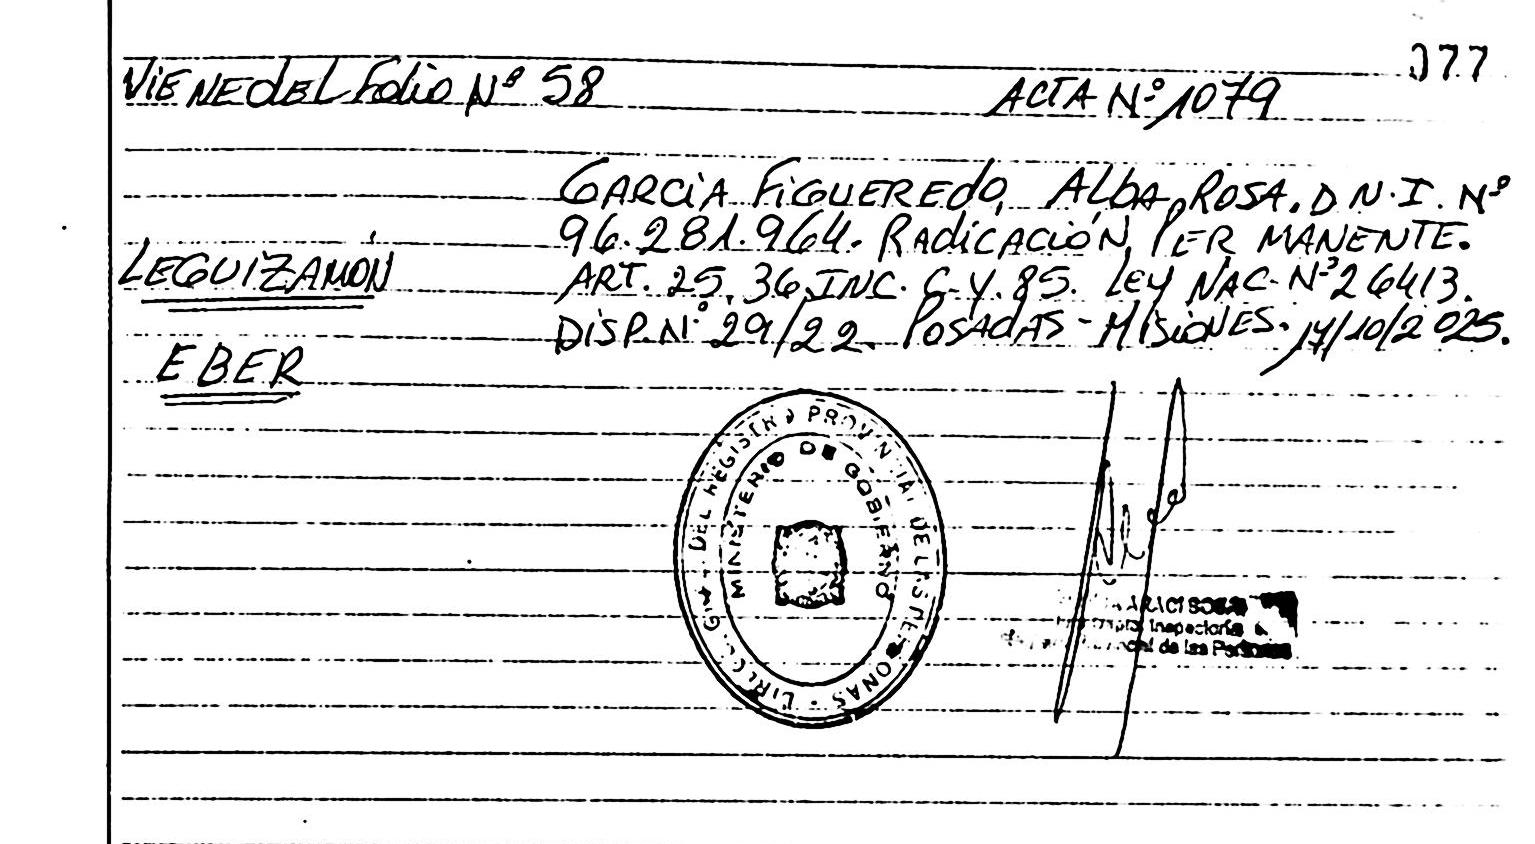 077
Viene del Folio Nº 58 ACTA Nº 1079
GARCIA FIGUEREDO, ALBA ROSA. D N.I. Nº
96.281.964. RADICACIÓN PERMANENTE.
LEGUIZAMÓN
ART. 25, 36, INC. C. Y. 85. LEY NAC. Nº 26413.
DISP. Nº 29/22. POSADAS - MISIONES. 17/10/2025.
EBER
DEL REGISTRO PROVINCIAL DE LAS PERSONAS
MINISTERIO DE GOBIERNO
ARACI SOSA
Inspectoría
de las Personas